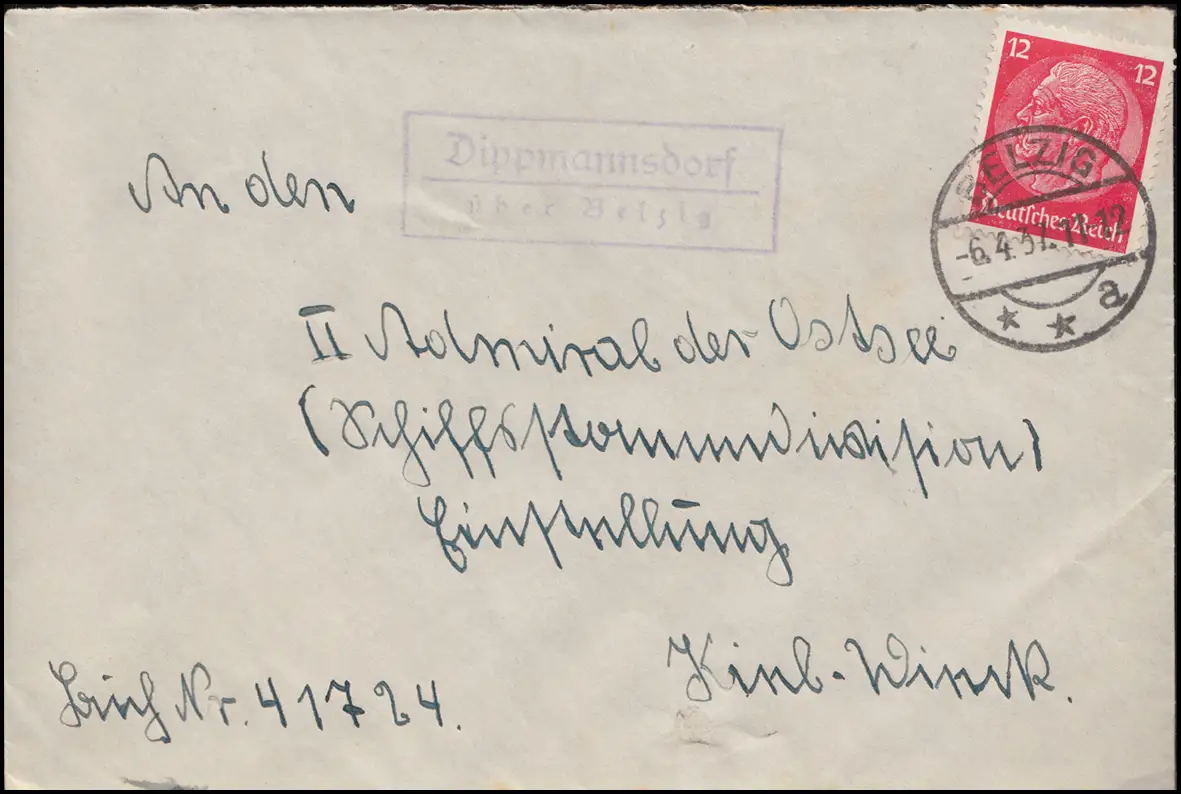 12 12
Deutsches Reich
BELZIG
-6.4.37.11-12
* * a
Dippmannsdorf
über Belzig
An den
II Admiral der Ostsee
(Schiffsstammdivision)
Einstellung
Kiel-Wieck.
Buch Nr. 41724.